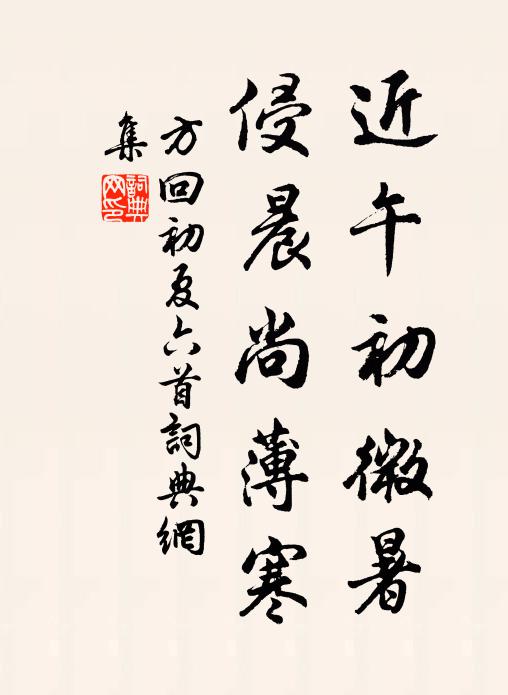 近午初微暑
侵晨尚薄寒
方回初夏六首詞典網
集
詞典网印